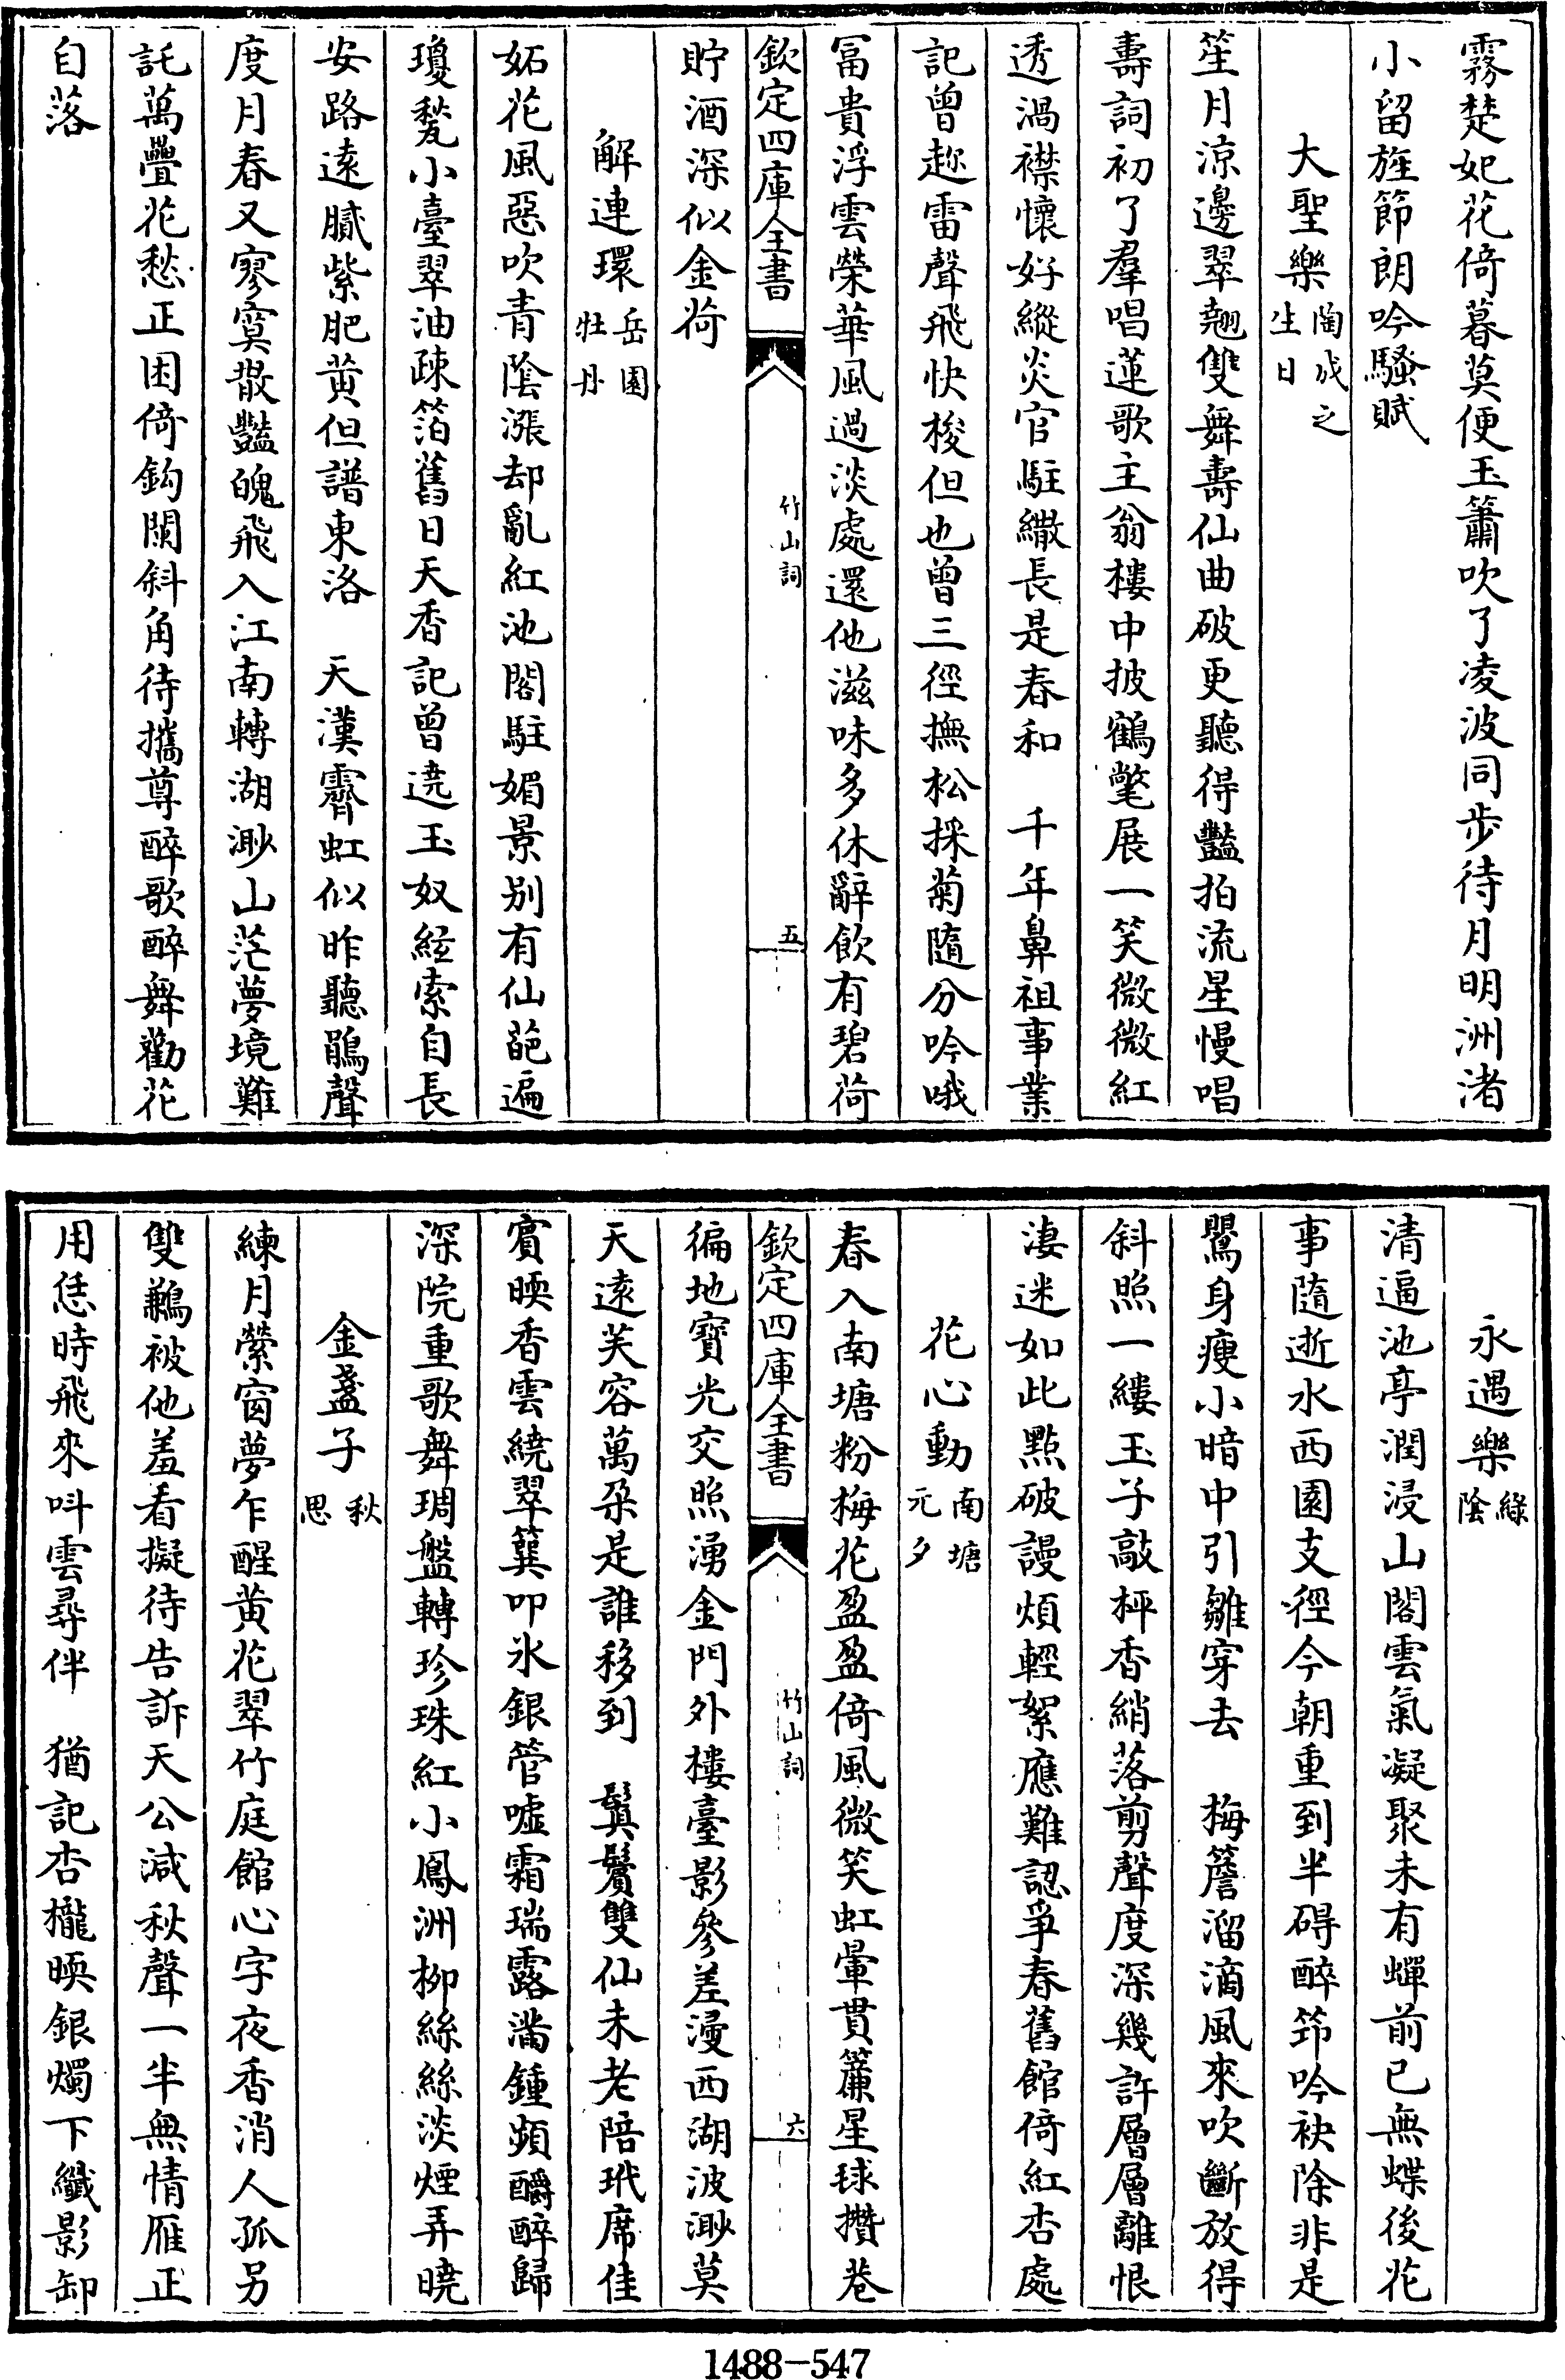 霧楚妃花倚暮莫便玉簫吹了凌波同步待月明洲渚
小留旌節朗吟騷賦
大聖樂陶成之生日
笙月涼邊翠翹雙舞壽仙曲破更聽得豔拍流星慢唱
壽詞初了羣唱蓮歌主翁樓中披鶴氅展一笑微微紅
透渦襟懷好縱炎官駐繖長是春和　千年鼻祖事業
記曾趂雷聲飛快梭但也曾三徑撫松採菊隨分吟哦
冨貴浮雲榮華風過淡處還他滋味多休辭飲有碧荷
欽定四庫全書
竹山詞
五
貯酒深似金荷
解連環岳園牡丹
妬花風惡吹青陰漲却亂紅池閣駐媚景别有仙葩遍
瓊甃小臺翠油疎箔舊日天香記曾遶玉奴絃索自長
安路遠膩紫肥黄但譜東洛　天漢霽虹似昨聽鵑聲
度月春又寥寞散豔魄飛入江南轉湖渺山茫夢境難
託萬疊花愁正困倚鈎闌斜角待攜尊醉歌醉舞勸花
自落
永遇樂綠陰
清逼池亭潤浸山閣雲氣凝聚未有蟬前已無蝶後花
事隨逝水西園支徑今朝重到半碍醉筇吟袂除非是
鸎身瘦小暗中引雛穿去　梅簷溜滴風來吹斷放得
斜照一縷玉子敲枰香綃落剪聲度深幾許層層離恨
淒迷如此點破謾煩輕絮應難認爭春舊館倚紅杏處
花心動南塘元夕
春入南塘粉梅花盈盈倚風微笑虹暈貫簾星球攢巷
徧地寶光交照湧金門外樓臺影參差浸西湖波渺莫
欽定四庫全書
竹山詞
六
天遠芙容萬朶是誰移到　鬒鬢雙仙未老陪玳席佳
賓暎香雲繞翠簨叩氷銀管嘘霜瑞露滿鍾頻釂醉歸
深院重歌舞琱盤轉珍珠紅小鳳洲栁絲絲淡煙弄曉
金盞子秋思
練月縈窗夢乍醒黄花翠竹庭館心字夜香消人孤另
雙鶼被他羞看擬待告訴天公減秋聲一半無情雁正
用恁時飛來呌雲尋伴　猶記杏櫳暎銀燭下纖影卸
1488－547